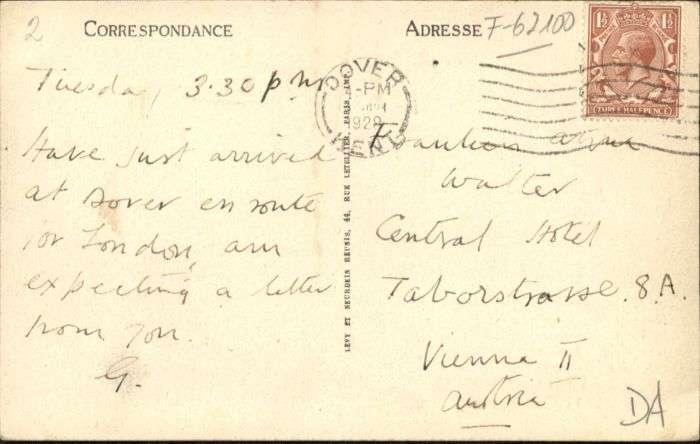 2 CORRESPONDANCE
ADRESSE F-62100
Tuesday, 3.30 pm
Have just arrived
at Dover en route
for London, am
expecting a letter
from you.
G.
LEVY ET NEURDEIN REUNIS, 44, RUE LETELLIER, PARIS IMP.
DOVER
-PM
1929
KENT
THREE HALFPENCE
1½ 1½
Walter
Central Hotel
Taborstrasse 8A.
Vienna II
Austria
DA